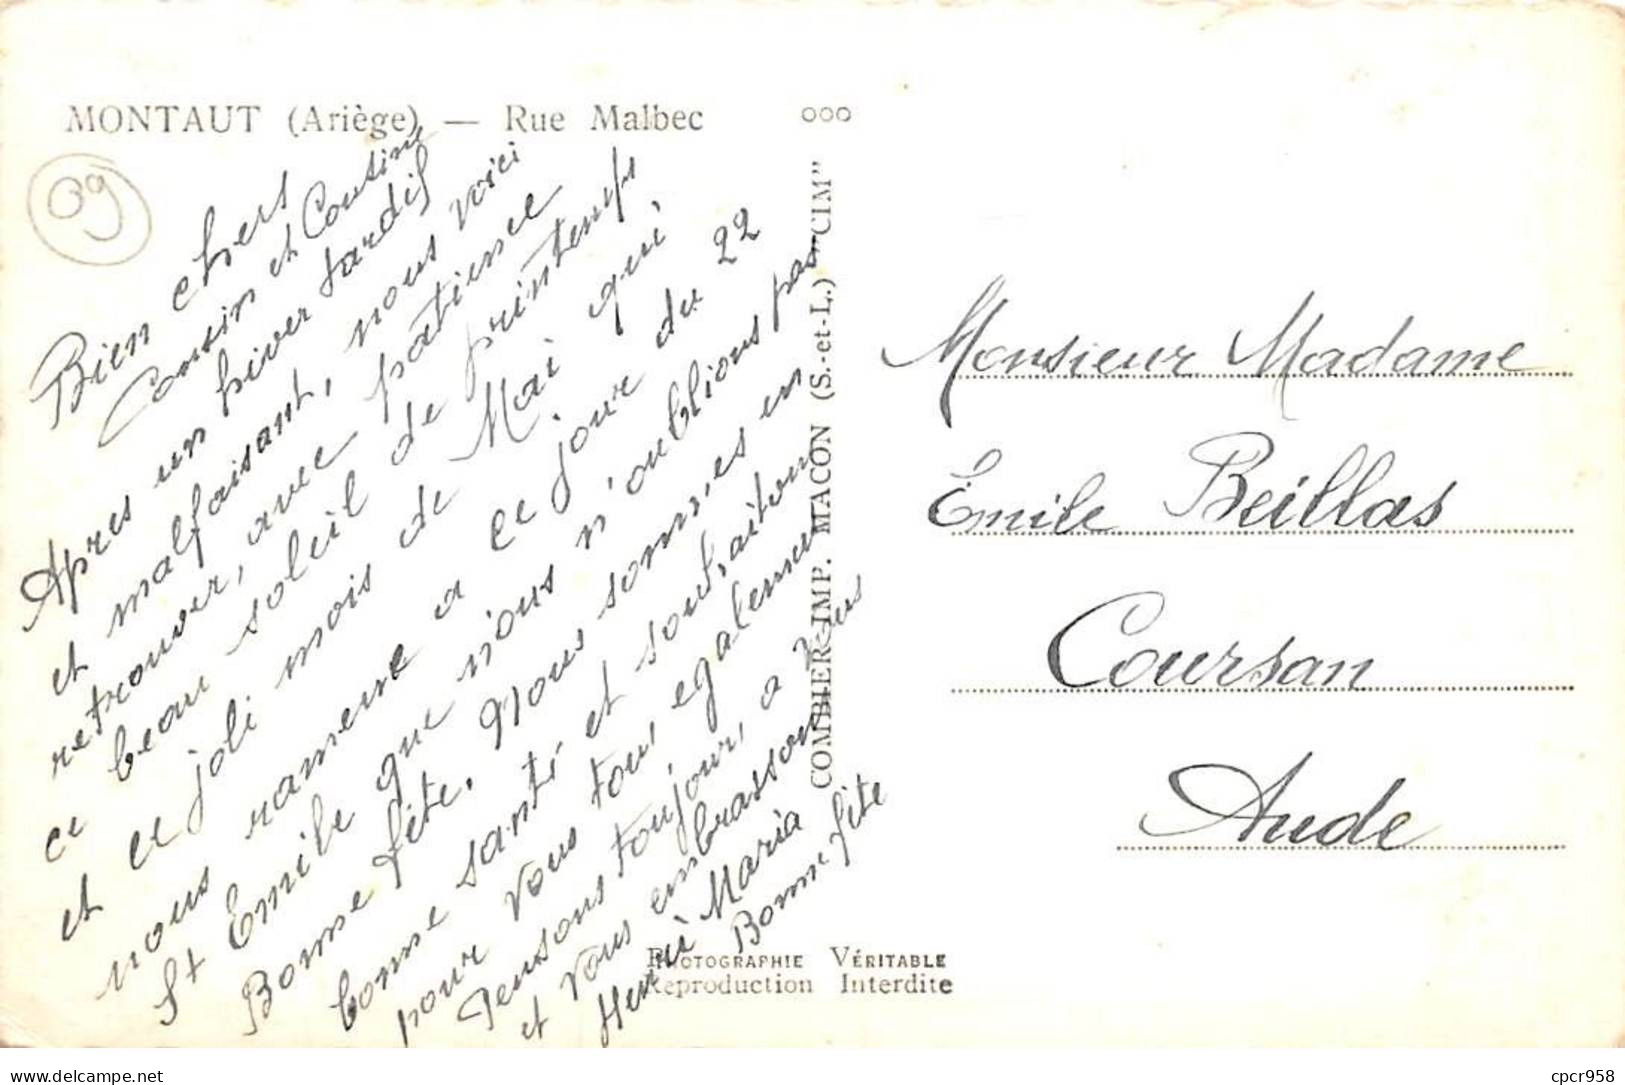 MONTAUT (Ariège) — Rue Malbec
09
Bien chers
Cousin et Cousine
Apres un hiver tardif
et malfaisant, nous voici
retrouver, avec patience
ce beau soleil de printemps
et ce joli mois de Mai qui
nous ramene a ce jour du 22
St Emile que nous n'oublions pas
Bonne fête. Nous sommes en
bonne santé et souhaitons
pour vous tous egalement
Pensons toujours a vous
et vous embrassons
Henri Maria
Bonne fête
COMBIER IMP. MACON (S.-et-L.) "CIM"
PHOTOGRAPHIE VÉRITABLE
Reproduction Interdite
Monsieur Madame
Emile Beillas
Coursan
Aude
www.delcampe.net
cpcr958